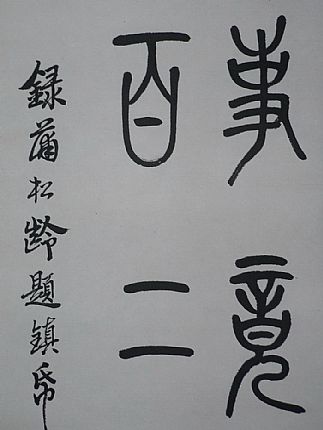 事竟
百二
録蒲松齡題鎮帋